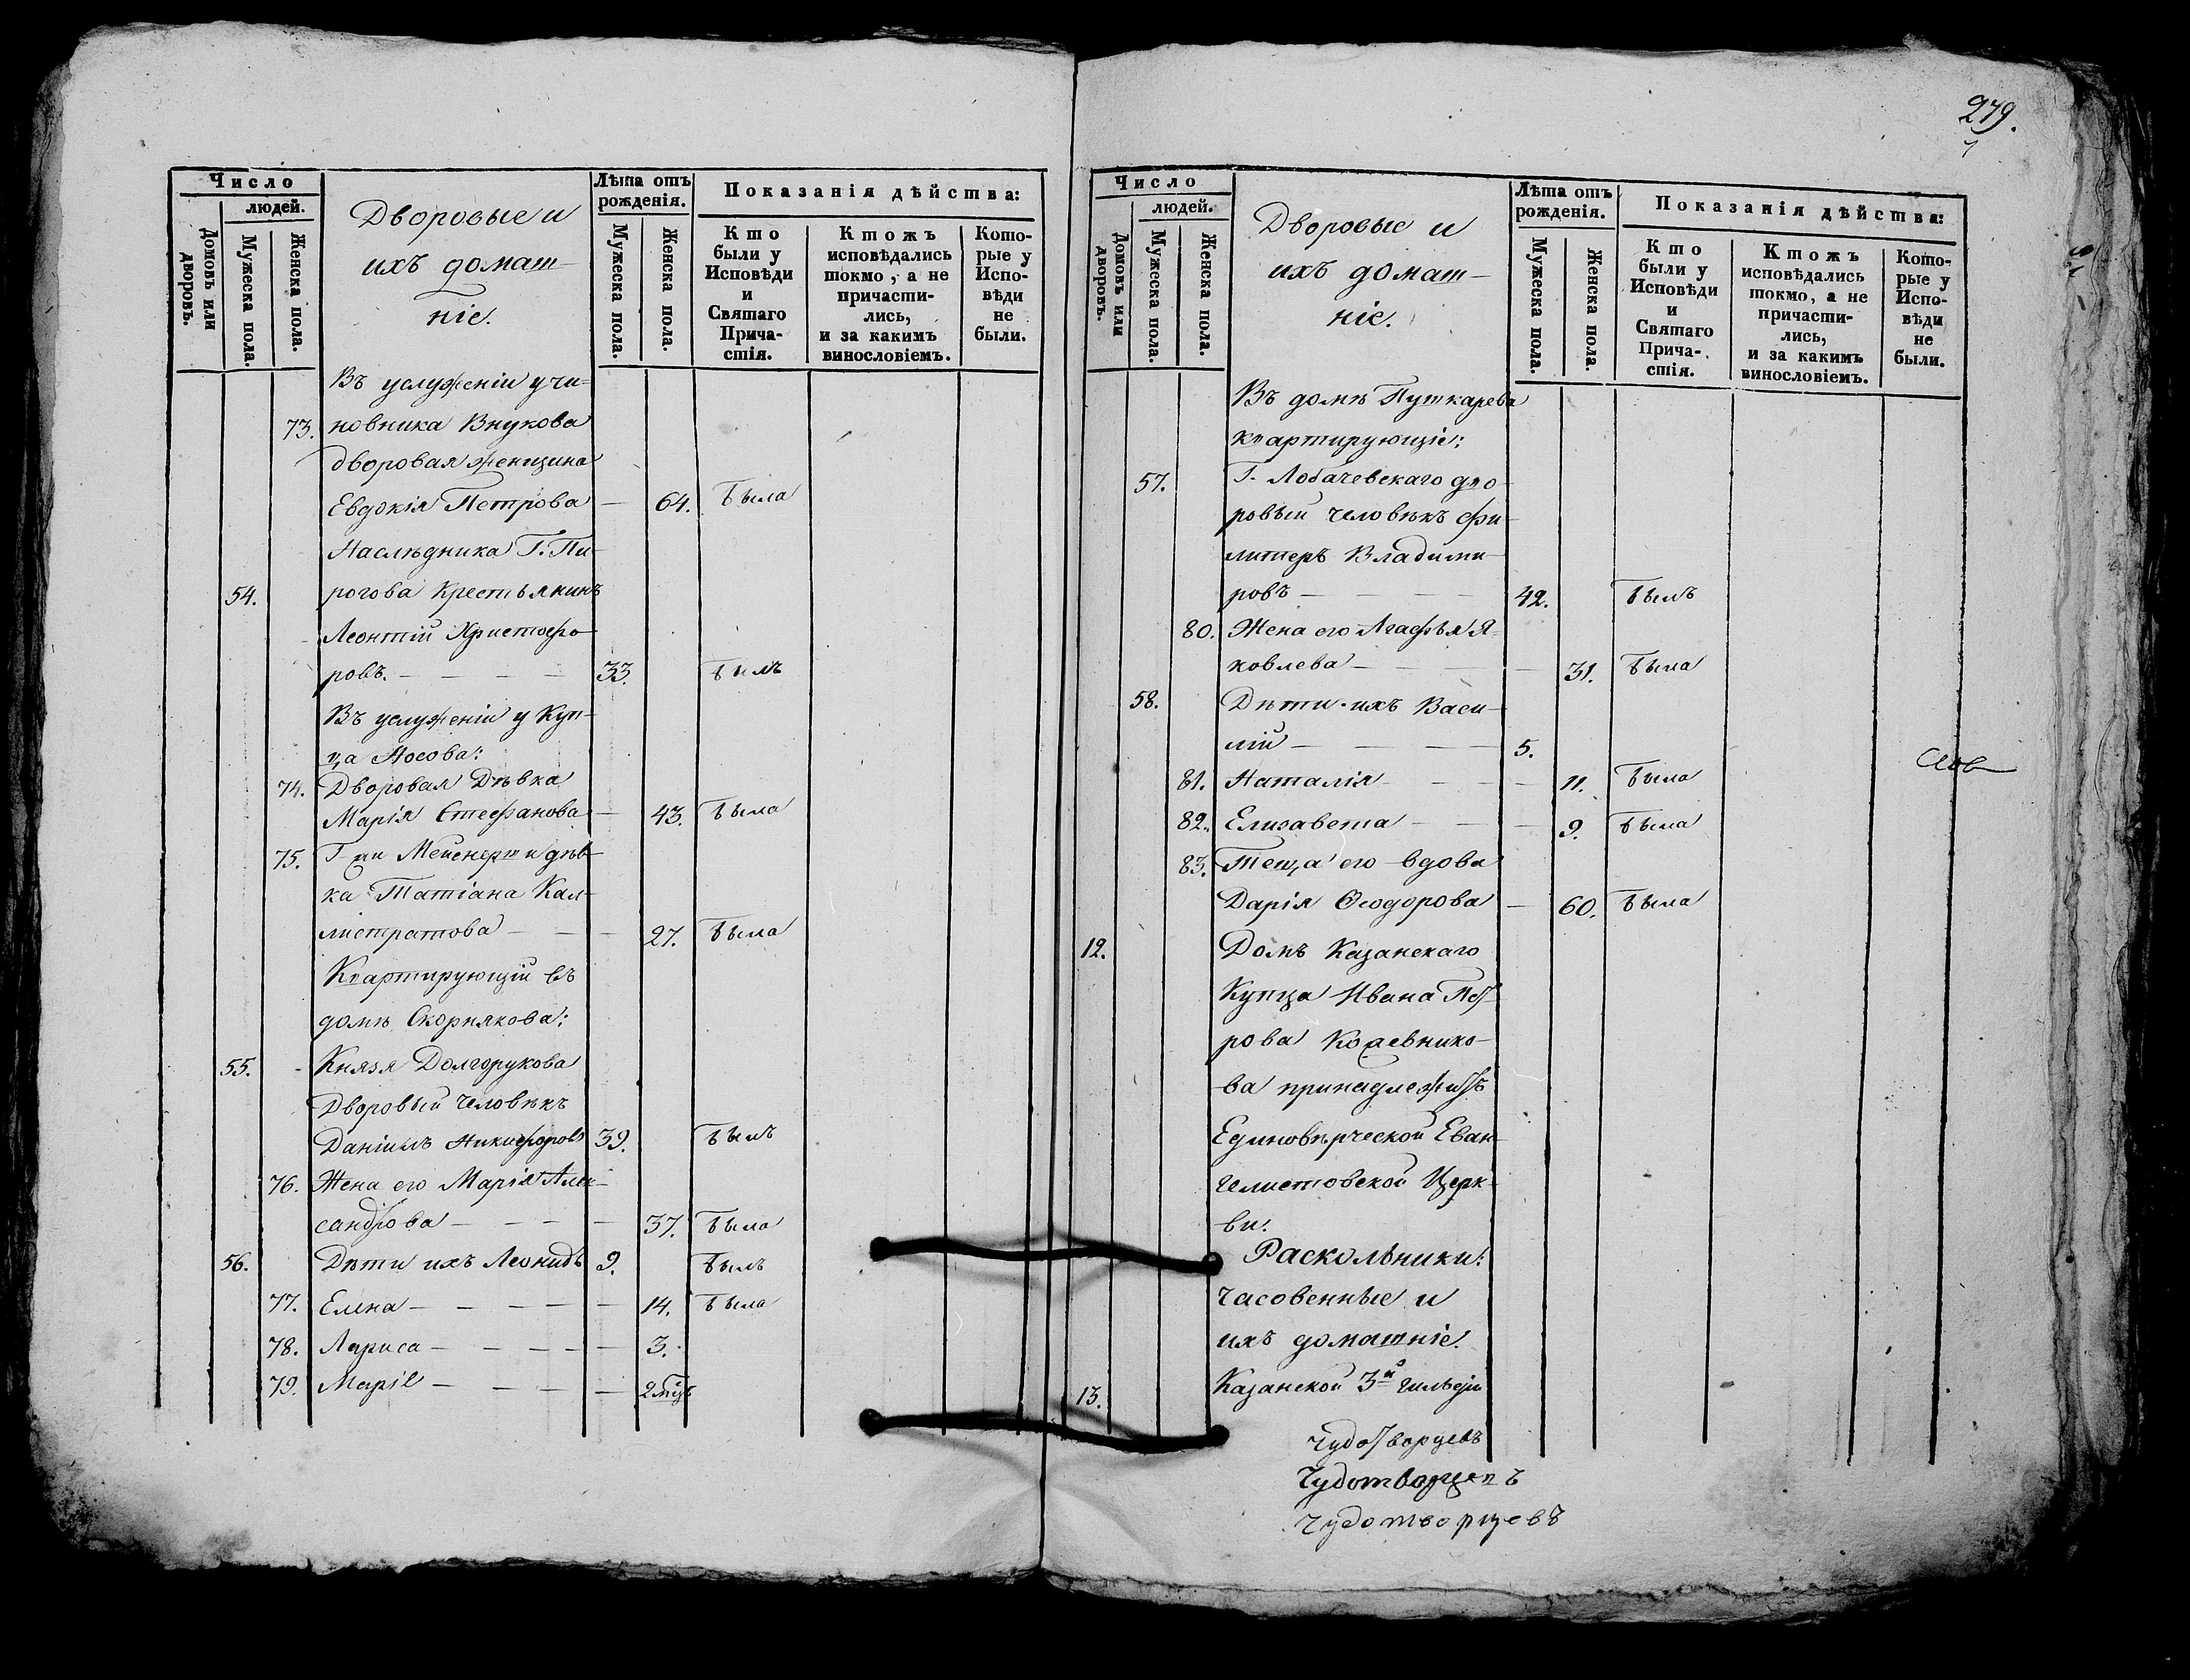 279.
Число
людей.
Домовъ или дворовъ.
Мужеска пола.
Женска пола.
Дворовые и
ихъ домаш-
ніе.
Лѣта отъ
рожденія.
Мужеска пола.
Женска пола.
Показанія дѣйства:
Кто
были у
Исповѣди
и
Святаго
Прича-
стія.
Ктожъ
исповѣдались
токмо, а не
причасти-
лись,
и за какимъ
винословіемъ.
Кото-
рые у
Испо-
вѣди
не
были.
Въ услуженіи у чи-
73. новника Внукова
дворовая женщина
Евдокія Петрова — 64. Была
Наслѣдника Г. Пи-
54. рогова Крестьянинъ
Леонтій Христофо-
ровъ. — 33. Былъ
Въ услуженіи у Куп-
ца Носова:
74. Дворовая Дѣвка
Марія Стефанова — 43. Была
75. Г-жи Мейснерти дѣв-
ка Татіана Кал-
листратова — 27. Была
Квартирующій въ
домѣ Скорнякова:
55. Князя Долгорукова
Дворовый Человѣкъ
Даніилъ Никифоровъ 39. Былъ
76. Жена его Марія Алек-
сандрова — 37. Была
56. Дѣти ихъ Леонидъ 9. Былъ
77. Елена — 14. Была
78. Лариса — 3.
79. Марія — 2 мѣс
Число
людей.
Домовъ или дворовъ.
Мужеска пола.
Женска пола.
Дворовые и
ихъ домаш-
ніе.
Лѣта отъ
рожденія.
Мужеска пола.
Женска пола.
Показанія дѣйства:
Кто
были у
Исповѣди
и
Святаго
Прича-
стія.
Ктожъ
исповѣдались
токмо, а не
причасти-
лись,
и за какимъ
винословіемъ.
Кото-
рые у
Испо-
вѣди
не
были.
Въ домѣ Пушкарева
квартирующіе:
57. Г. Лобачевскаго дво-
ровый человѣкъ Фи-
литеръ Владими-
ровъ — 42. Былъ
80. Жена его Агафья Я-
ковлева — 31. Была
58. Дѣти ихъ Васи-
лій — 5.
81. Наталія — 11. Была
82. Елизавета — 9. Была
83. Теща его вдова
Дарія Ѳеодорова — 60. Была
12. Домъ Казанскаго
Купца Ивана Пет-
рова Кожевнико-
ва принадлежитъ
Единовѣрческой Еван-
гелистовской Церк-
ви.
Раскольники:
часовенные и
ихъ домашніе.
13. Казанской 3й гильдіи
чудотворцевъ
Чудотворцевъ
чудотворцевъ